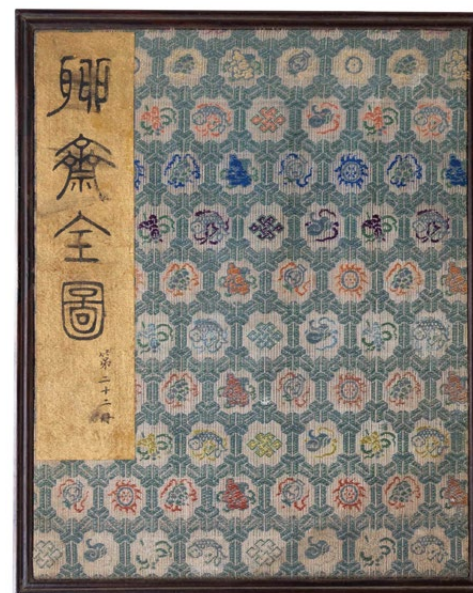 聊齋全圖
第二十二冊